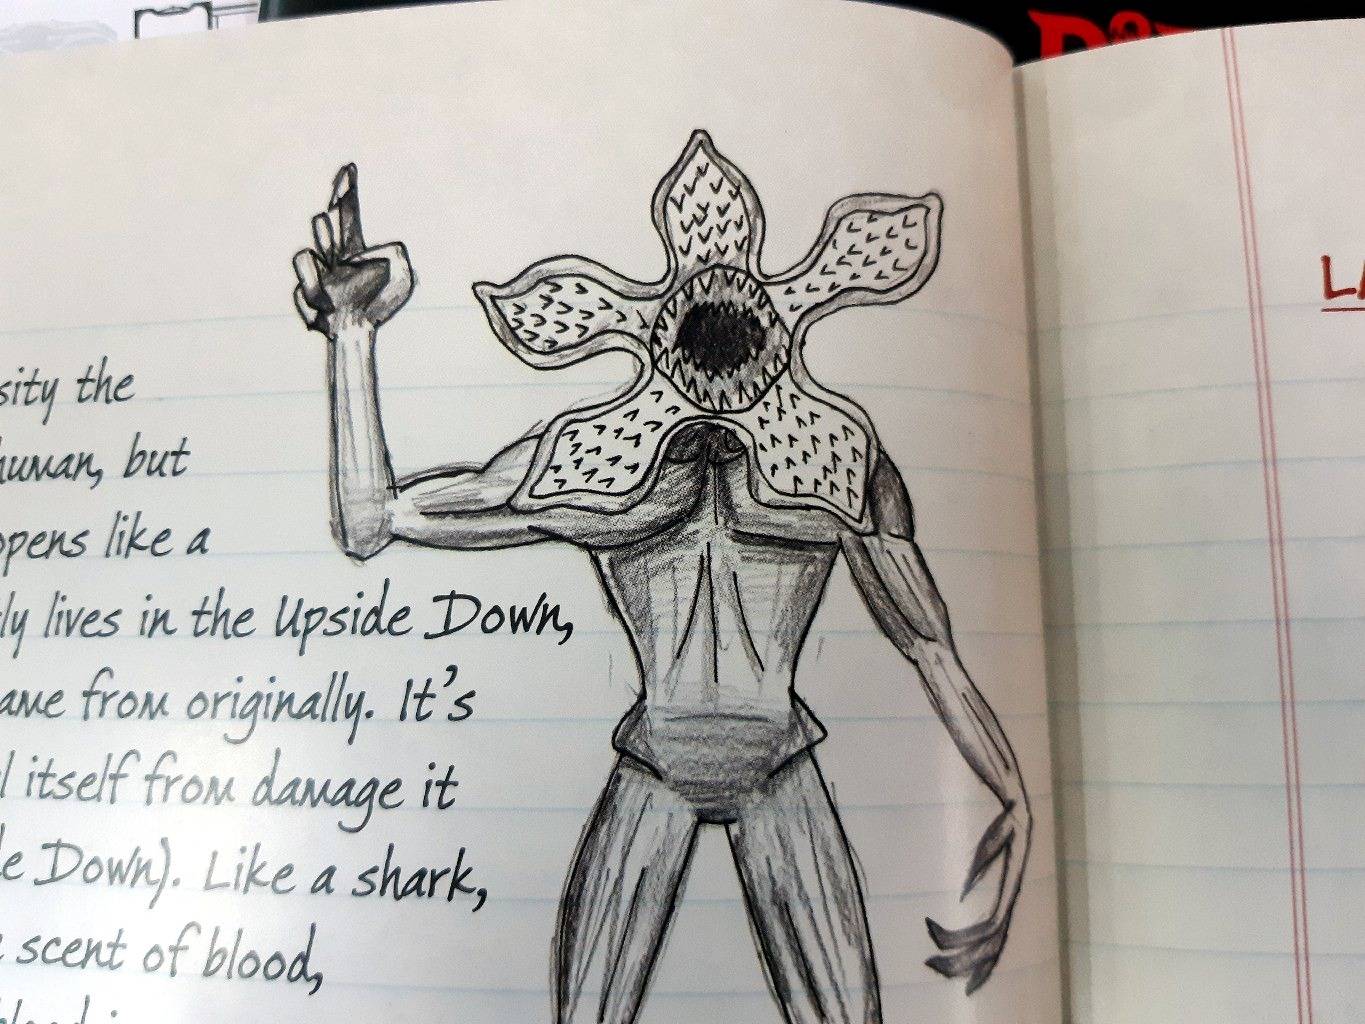 sity the
human, but
opens like a
ly lives in the Upside Down,
ame from originally. It's
l itself from damage it
e Down). Like a shark,
scent of blood,